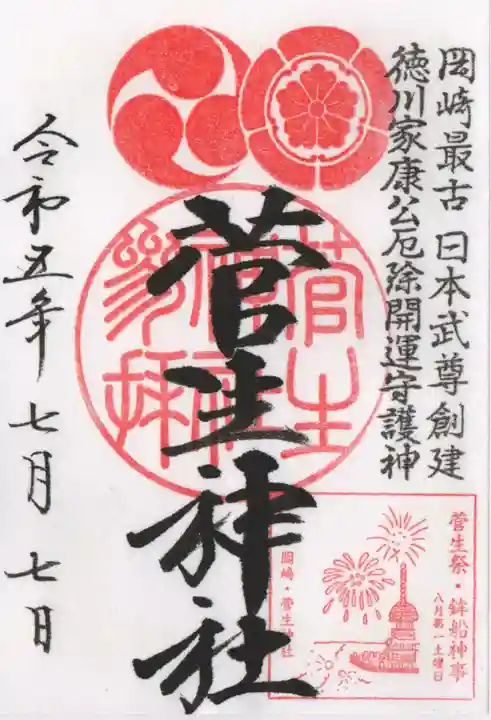 岡崎最古 日本武尊創建
徳川家康公厄除開運守護神
菅生神社
菅生
参拝
令和五年 七月 七日
菅生祭・鉾船神事
八月第一土曜日
岡崎・菅生神社